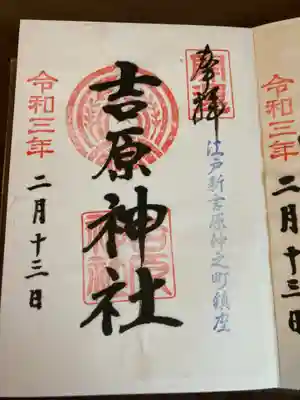 奉拝
江戸新吉原仲之町鎮座
吉原神社
令和三年
二月十三日
令和三年
二月十三